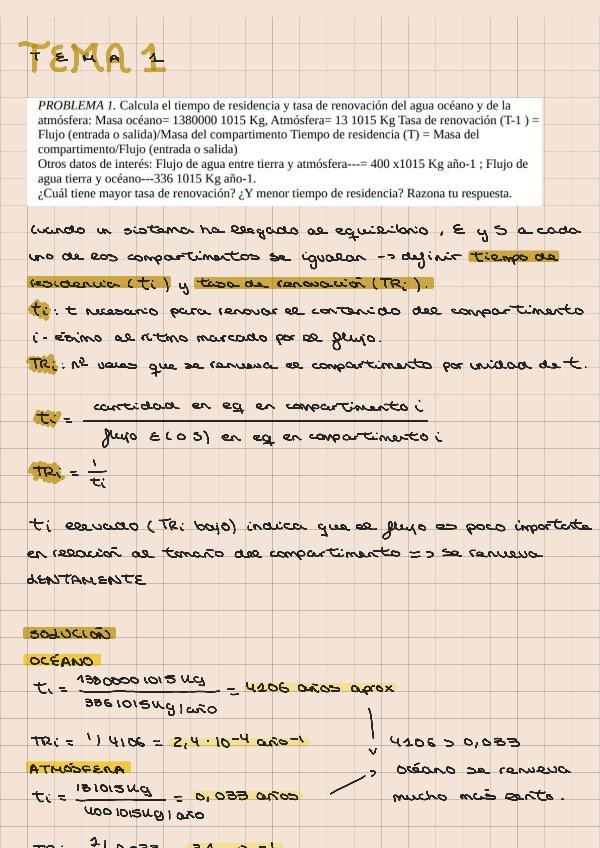 TEMA 1
PROBLEMA 1. Calcula el tiempo de residencia y tasa de renovación del agua océano y de la
atmósfera: Masa océano= 1380000 1015 Kg, Atmósfera= 13 1015 Kg Tasa de renovación (T-1 ) =
Flujo (entrada o salida)/Masa del compartimento Tiempo de residencia (T) = Masa del
compartimento/Flujo (entrada o salida)
Otros datos de interés: Flujo de agua entre tierra y atmósfera---= 400 x1015 Kg año-1 ; Flujo de
agua tierra y océano---336 1015 Kg año-1.
¿Cuál tiene mayor tasa de renovación? ¿Y menor tiempo de residencia? Razona tu respuesta.
Cuando un sistema ha llegado al equilibrio, E y S a cada
uno de los compartimentos se igualan -> definir tiempo de
residencia (ti) y tasa de renovación (TRi).
ti: t necesario para renovar el contenido del compartimento
i-ésimo al ritmo marcado por el flujo.
TRi: nº veces que se renueva el compartimento por unidad de t.
ti = cantidad en eq en compartimento i
flujo E (o S) en eq en compartimento i
TRi = 1
ti
ti elevado (TRi bajo) indica que el flujo es poco importante
en relación al tamaño del compartimento => se renueva
LENTAMENTE
SOLUCIÓN
OCÉANO
ti = 1380000 1015 Kg = 4106 años aprox
336 1015 Kg/año
TRi = 1/4106 = 2,4·10-4 año-1
4106 > 0,033
ATMÓSFERA
océano se renueva
ti = 131015 Kg = 0,033 años
mucho más lento.
400 1015 Kg/año